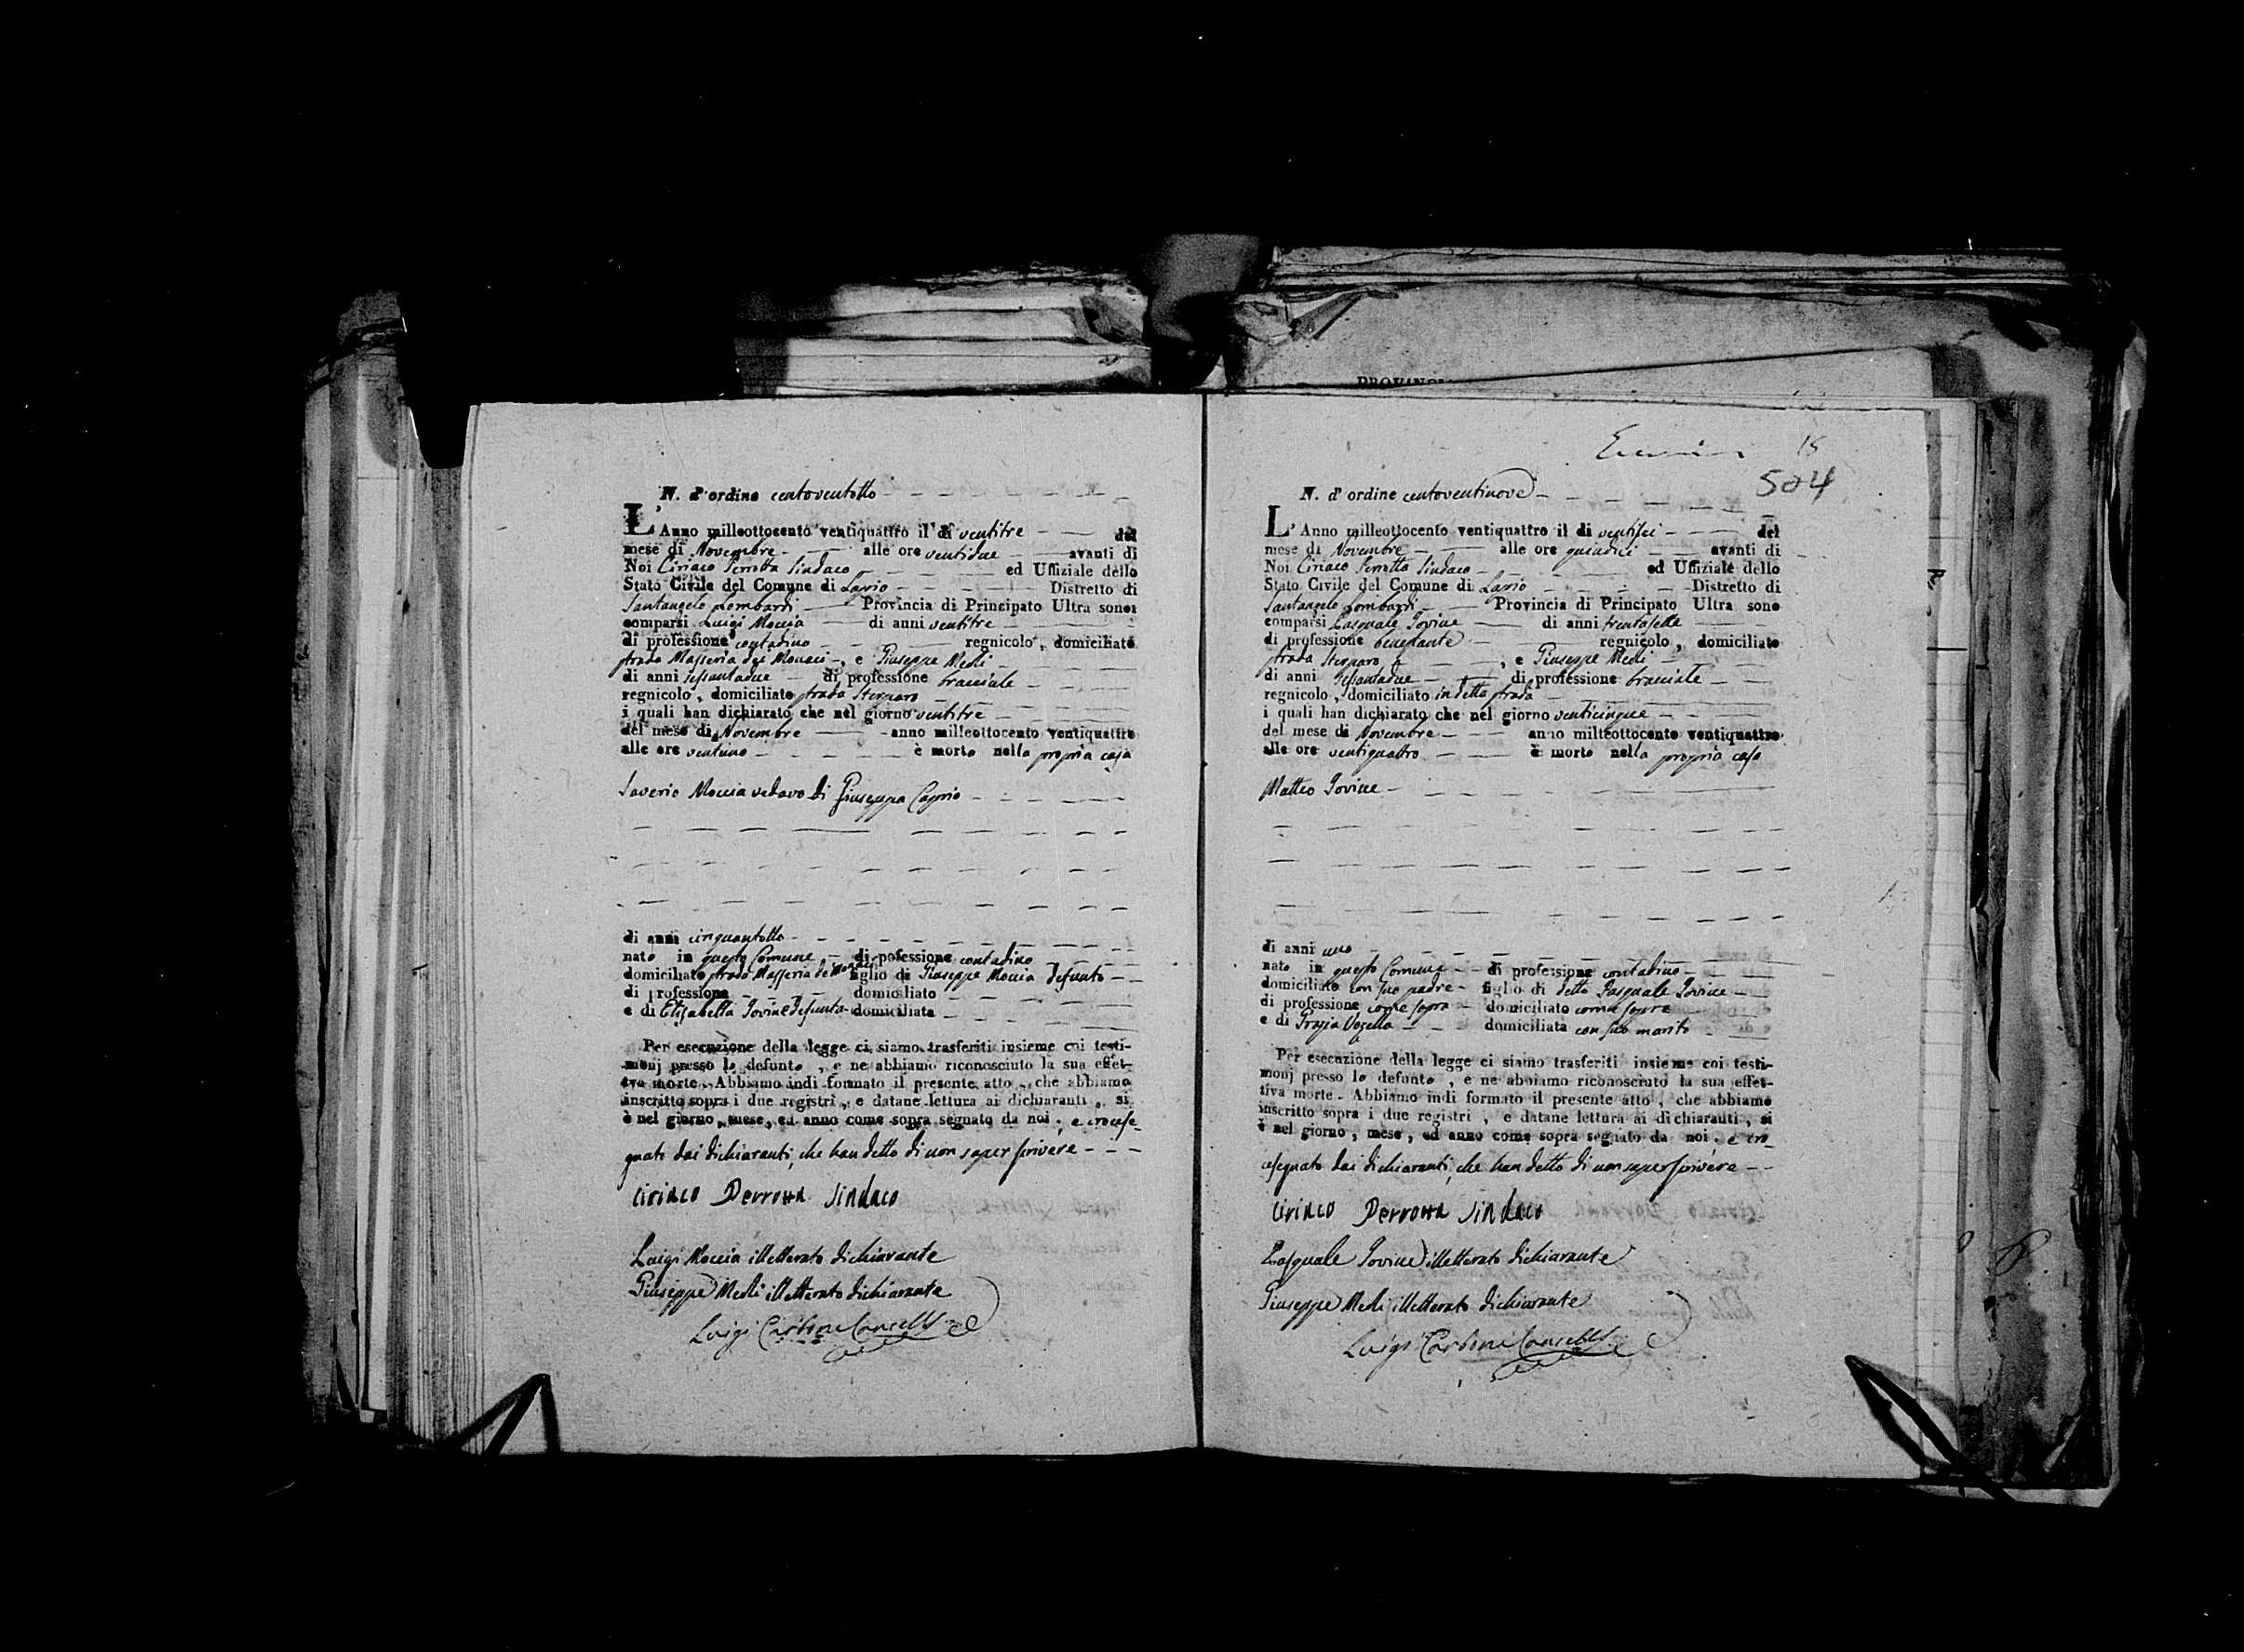 N. d'ordine centoventotto
L'Anno milleottocento ventiquattro il di ventitre del
mese di Novembre alle ore ventidue avanti di
Noi Ciriaco Perrotta Sindaco ed Uffiziale dello
Stato Civile del Comune di Lapio Distretto di
Santangelo Lombardi Provincia di Principato Ultra sono
comparsi Luigi Moccia di anni ventitre
di professione contadino regnicolo, domiciliato
strada Masseria dei Monaci, e Giuseppe Meoli
di anni sessantadue di professione bracciale
regnicolo, domiciliato strada Sternaro
i quali han dichiarato che nel giorno ventitre
del mese di Novembre anno milleottocento ventiquattro
alle ore ventuno è morto nella propria casa
Saverio Moccia vedovo di Giuseppa Caprio
di anni cinquantotto
nato in questo Comune di pofessione contadino
domiciliato strada Masseria de Monaci figlio di Giuseppe Moccia defunto
di professione domiciliato
e di Elisabetta Iovine defunta domiciliata
Per esecuzione della legge ci siamo trasferiti insieme coi testi-
monj presso lo defunto, e ne abbiamo riconosciuto la sua effet-
tiva morte. Abbiamo indi formato il presente atto, che abbiamo
inscritto sopra i due registri, e datane lettura ai dichiaranti, si
è nel giorno, mese, ed anno come sopra segnato da noi, e crocese-
gnati dai dichiaranti, che han detto di non saper scrivere
Ciriaco Perrotta Sindaco
Luigi Moccia illetterato dichiarante
Giuseppe Meoli illetterato dichiarante
Luigi Carbone Cancell.
15
504
N. d'ordine centoventinove
L'Anno milleottocento ventiquattro il di ventisei del
mese di Novembre alle ore quindici avanti di
Noi Ciriaco Perrotta Sindaco ed Uffiziale dello
Stato Civile del Comune di Lapio Distretto di
Santangelo Lombardi Provincia di Principato Ultra sono
comparsi Pasquale Iovine di anni trentasette
di professione benestante regnicolo, domiciliato
strada Sternaro, e Giuseppe Meoli
di anni sessantadue di professione bracciale
regnicolo, domiciliato in detta strada
i quali han dichiarato che nel giorno venticinque
del mese di Novembre anno milleottocento ventiquattro
alle ore ventiquattro è morto nella propria casa
Matteo Iovine
di anni uno
nato in questo Comune di professione contadino
domiciliato con suo padre figlio di detto Pasquale Iovine
di professione come sopra domiciliato come sopra
e di Grazia Vozella domiciliata con suo marito
Per esecuzione della legge ci siamo trasferiti insieme coi testi-
monj presso lo defunto, e ne abbiamo riconosciuto la sua effet-
tiva morte. Abbiamo indi formato il presente atto, che abbiamo
inscritto sopra i due registri, e datane lettura ai dichiaranti, si
è nel giorno, mese, ed anno come sopra segnato da noi, e cro-
cesegnato dai dichiaranti, che han detto di non saper scrivere
Ciriaco Perrotta Sindaco
Pasquale Iovine illetterato dichiarante
Giuseppe Meoli illetterato dichiarante
Luigi Carbone Cancell.